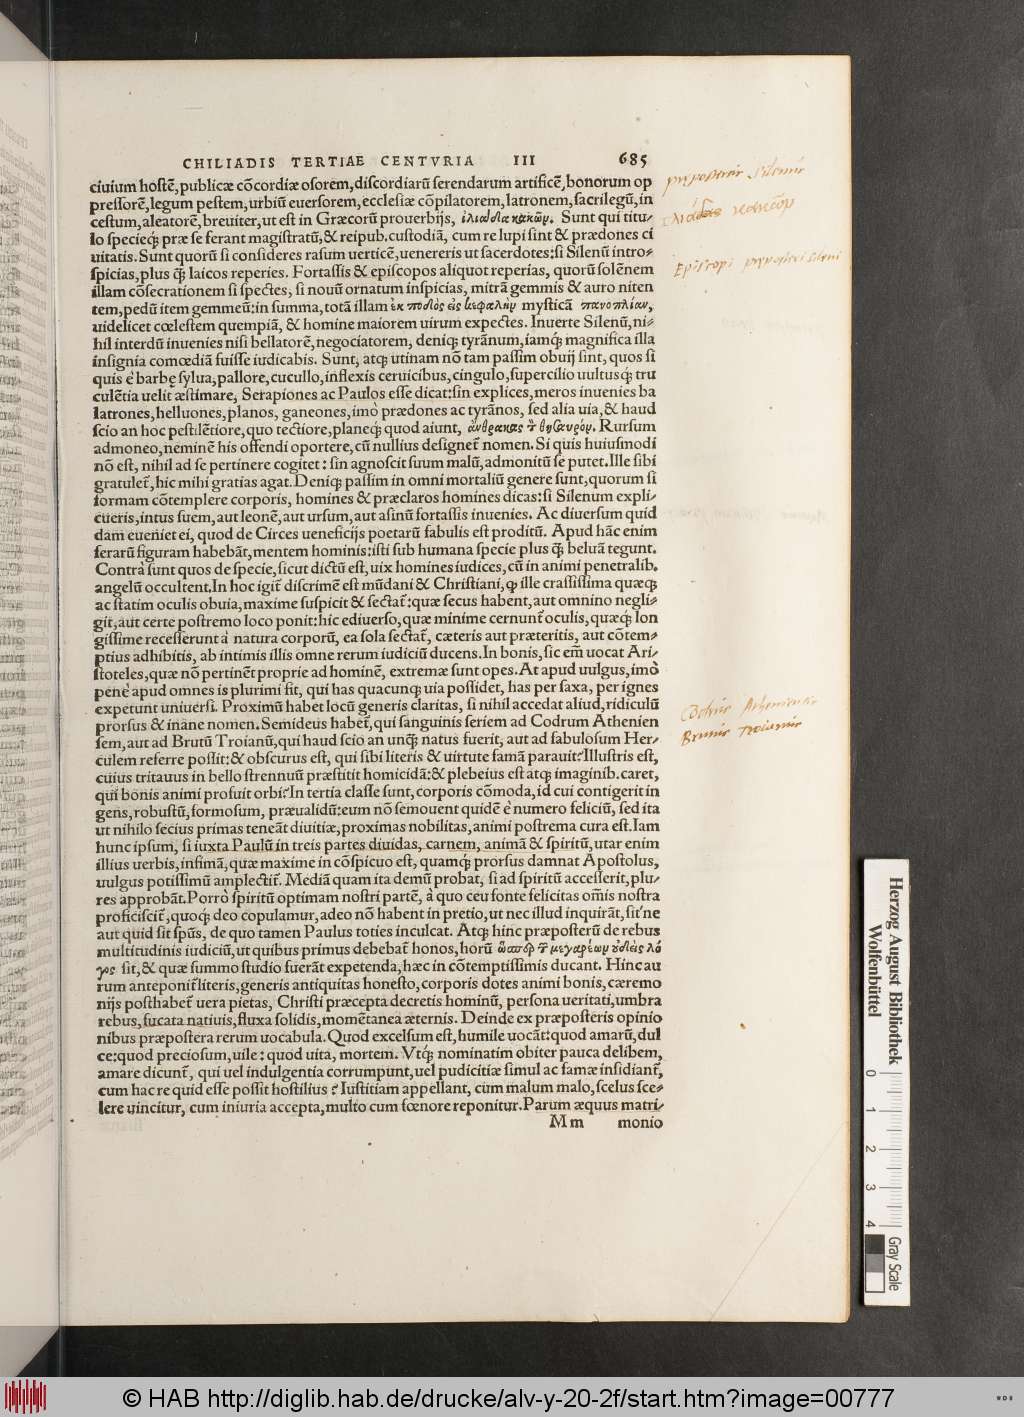 CHILIADIS TERTIAE CENTVRIA III 685
ciuium hostē, publicæ cōcordiæ osorem, discordiarū serendarum artificē, bonorum op
pressorē, legum pestem, urbiū euersorem, ecclesiæ cōpilatorem, latronem, sacrilegū, in
cestum, aleatorē, breuiter, ut est in Græcorū prouerbijs, ἰλιάδα κακῶν. Sunt qui titu-
lo specieq́; præ se ferant magistratū, & reipub. custodiā, cum re lupi sint & prædones ci
uitatis. Sunt quorū si consideres rasum uerticē, uenereris ut sacerdotes: si Silenū intro-
spicias, plus q̄; laicos reperies. Fortassis & episcopos aliquot reperias, quorū solēnem
illam cōsecrationem si spectes, si nouū ornatum inspicias, mitrā gemmis & auro niten
tem, pedū item gemmeū: in summa, totā illam ἐκ ποδὸς εἰς κεφαλὴν mysticā πανοπλίαν,
uidelicet cœlestem quempiā, & homine maiorem uirum expectes. Inuerte Silenū, ni-
hil interdū inuenies nisi bellatorē, negociatorem, deniq; tyrānum, iamq́; magnifica illa
insignia comœdiā fuisse iudicabis. Sunt, atq; utinam nō tam passim obuij sint, quos si
quis è barbę sylua, pallore, cucullo, inflexis ceruicibus, cingulo, supercilio uultusq́; tru
culētia uelit æstimare, Serapiones ac Paulos esse dicat: sin explices, meros inuenies ba
latrones, helluones, planos, ganeones, imò prædones ac tyrānos, sed alia uia, & haud
scio an hoc pestilētiore, quo tectiore, planeq́; quod aiunt, ἄνθρακας τ̀ θησαυρόν. Rursum
admoneo, neminē his offendi oportere, cū nullius designet̃ nomen. Si quis huiusmodi
nō est, nihil ad se pertinere cogitet: sin agnoscit suum malū, admonitū se putet. Ille sibi
gratulet̃, hic mihi gratias agat. Deniq; passim in omni mortaliū genere sunt, quorum si
formam cōtemplere corporis, homines & præclaros homines dicas: si Silenum expli-
cueris, intus suem, aut leonē, aut ursum, aut asinū fortassis inuenies. Ac diuersum quid
dam eueniet ei, quod de Circes ueneficijs poetarū fabulis est proditū. Apud hāc enim
ferarū figuram habebāt, mentem hominis: isti sub humana specie plus q̄; beluā tegunt.
Contrà sunt quos de specie, sicut dictū est, uix homines iudices, cū in animi penetralib.
angelū occultent. In hoc igit̃ discrimē est mūdani & Christiani, q̃ ille crassissima quæq;
ac statim oculis obuia, maxime suspicit & sectat̃: quæ secus habent, aut omnino negli-
git, aut certe postremo loco ponit: hic ediuerso, quæ minime cernunt̃ oculis, quæq́; lon
gissime recesserunt à natura corporū, ea sola sectat̃, cæteris aut præteritis, aut cōtem-
ptius adhibitis, ab intimis illis omne rerum iudiciū ducens. In bonis, sic em̄ uocat Ari-
stoteles, quæ nō pertinēt proprie ad hominē, extremæ sunt opes. At apud uulgus, imò
penè apud omnes is plurimi fit, qui has quacunq; uia possidet, has per saxa, per ignes
expetunt uniuersi. Proximū habet locū generis claritas, si nihil accedat aliud, ridiculū
prorsus & inane nomen. Semideus habet̃, qui sanguinis seriem ad Codrum Athenien
sem, aut ad Brutū Troianū, qui haud scio an unq̄; natus fuerit, aut ad fabulosum Her-
culem referre possit: & obscurus est, qui sibi literis & uirtute famā parauit: Illustris est,
cuius tritauus in bello strennuū præstitit homicidā: & plebeius est atq; imaginib. caret,
qui bonis animi profuit orbi: In tertia classe sunt, corporis cōmoda, id cui contigerit in
gens, robustū, formosum, præualidū: eum nō semouent quidē è numero feliciū, sed ita
ut nihilo secius primas teneāt diuitiæ, proximas nobilitas, animi postrema cura est. Iam
hunc ipsum, si iuxta Paulū in treis partes diuidas, carnem, animā & spiritū, utar enim
illius uerbis, infimā, quæ maxime in cōspicuo est, quamq́; prorsus damnat Apostolus,
uulgus potissimū amplectit̃. Mediā quam ita demū probat, si ad spiritū accesserit, plu-
res approbāt. Porrò spiritū optimam nostri partē, à quo ceu fonte felicitas om̄is nostra
proficiscit̃, quoq́; deo copulamur, adeo nō habent in pretio, ut nec illud inquirāt, sit'ne
aut quid sit sp̄us, de quo tamen Paulus toties inculcat. Atq; hinc præposterū de rebus
multitudinis iudiciū, ut quibus primus debebat̃ honos, horū ὥσπερ τ̀ μεγαρέων οὐδεὶς λό
γος sit, & quæ summo studio fuerāt expetenda, hæc in cōtemptissimis ducant. Hinc au
rum anteponit̃ literis, generis antiquitas honesto, corporis dotes animi bonis, cæremo
nijs posthabet̃ uera pietas, Christi præcepta decretis hominū, persona ueritati, umbra
rebus, fucata natiuis, fluxa solidis, momētanea æternis. Deinde ex præposteris opinio
nibus præpostera rerum uocabula. Quod excelsum est, humile uocāt: quod amarū, dul
ce: quod preciosum, uile: quod uita, mortem. Vtq́; nominatim obiter pauca delibem,
amare dicunt̃, qui uel indulgentia corrumpunt, uel pudicitiæ simul ac famæ insidiant̃,
cum hac re quid esse possit hostilius? Iustitiam appellant, cum malum malo, scelus sce-
lere uincitur, cum iniuria accepta, multo cum fœnore reponitur. Parum æquus matri-
Mm monio
præposteri Sileni
Episcopi præposteri Sileni
Codrus Atheniensis
Brutus Troianus
Herzog August Bibliothek
Wolfenbüttel
0 1 2 3 4
Gray Scale
© HAB http://diglib.hab.de/drucke/alv-y-20-2f/start.htm?image=00777